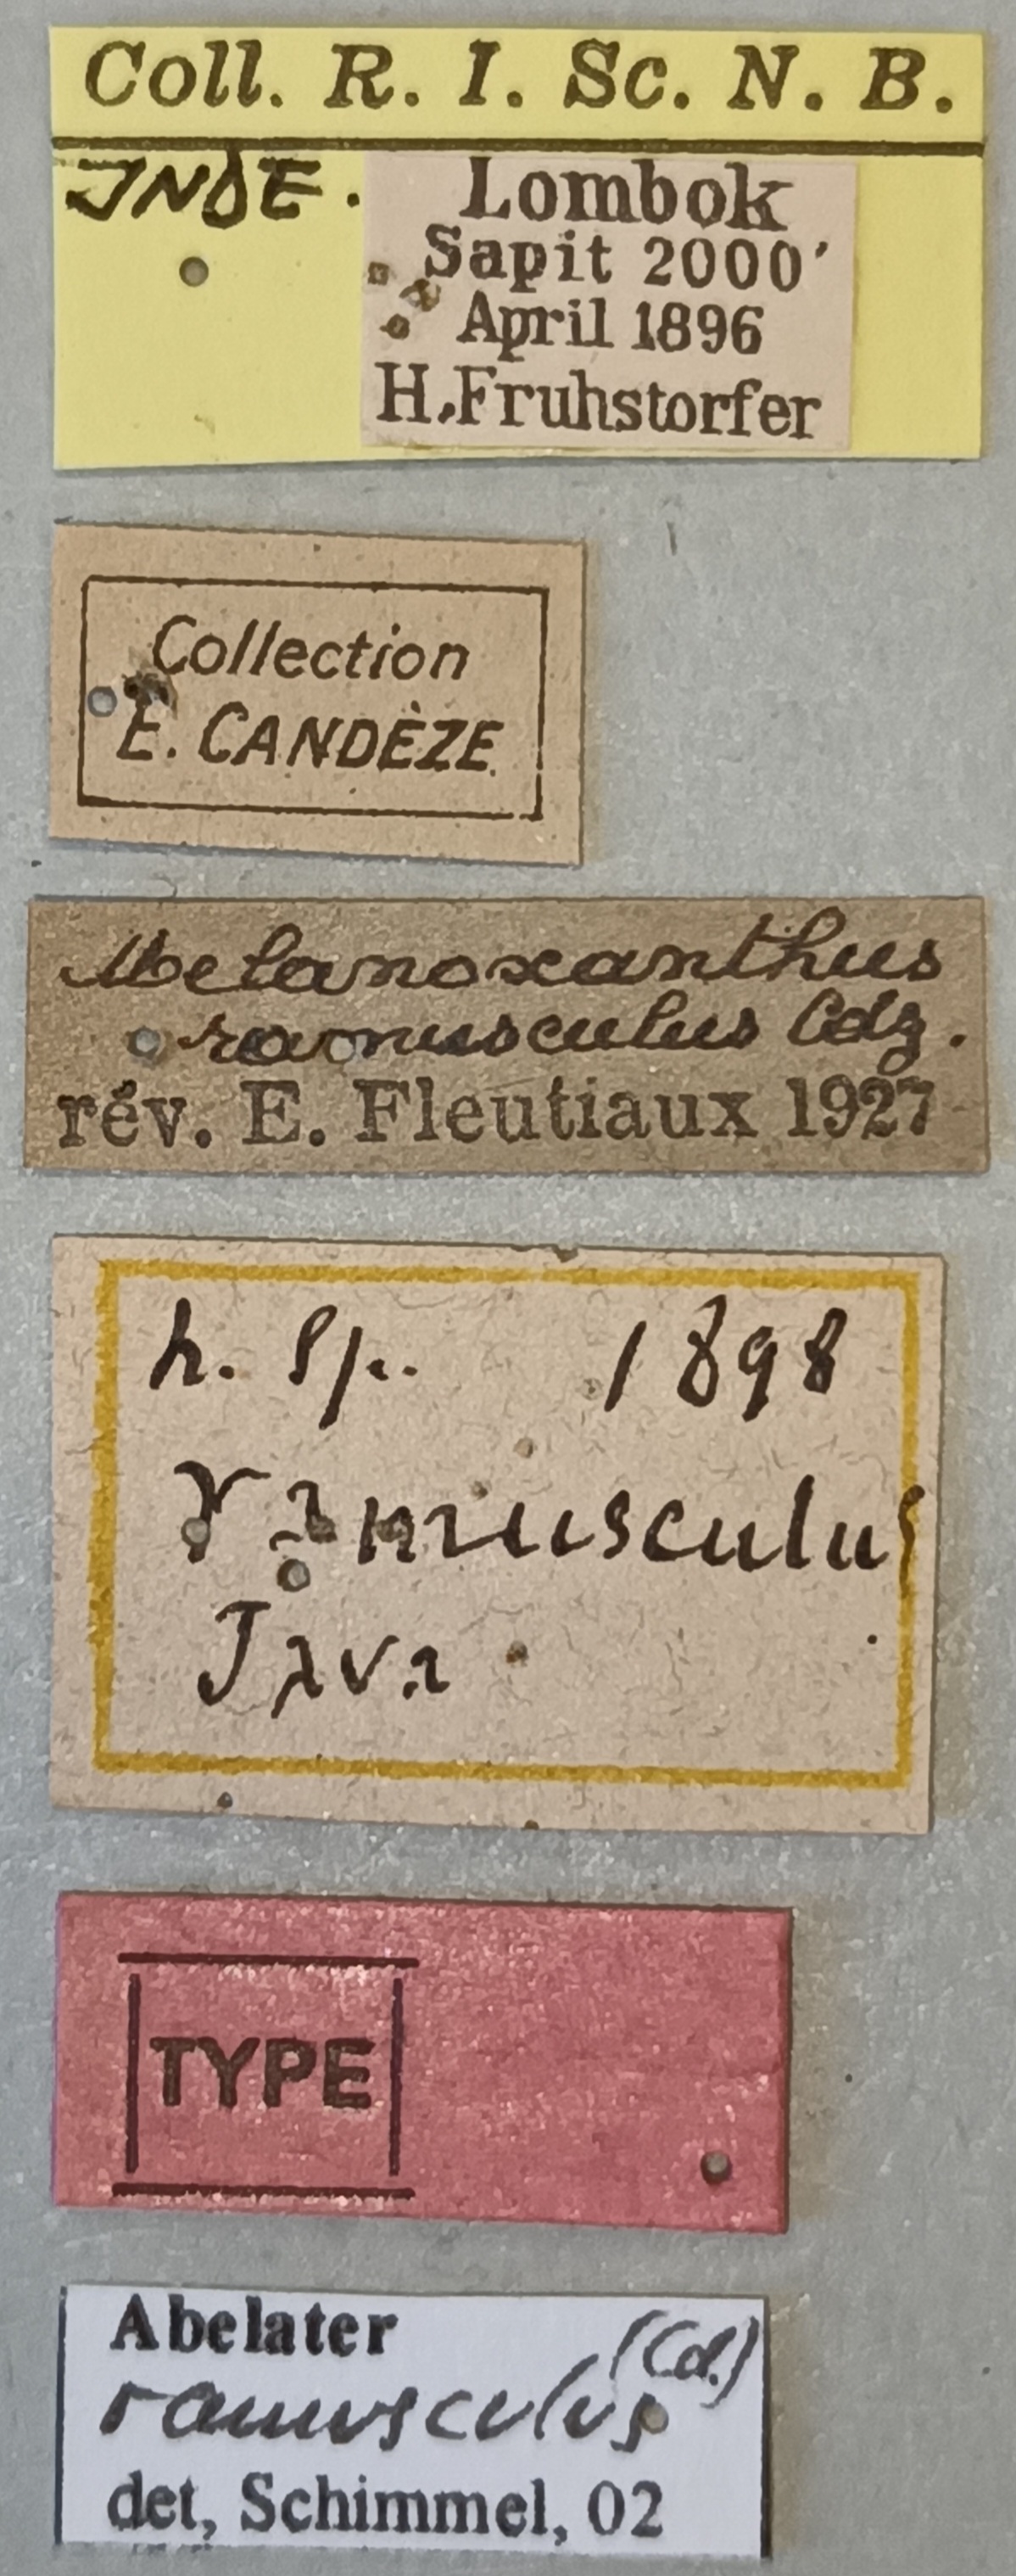 Coll. R. I. Sc. N. B.
INDE.
Lombok
Sapit 2000'
April 1896
H. Fruhstorfer
Collection
E. CANDÈZE
Melanoxanthus
ramusculus Cdz.
rév. E. Fleutiaux 1927
n. Sp. 1898
ramusculus
Java
TYPE
Abelater
ramusculus (Cd.)
det, Schimmel, 02